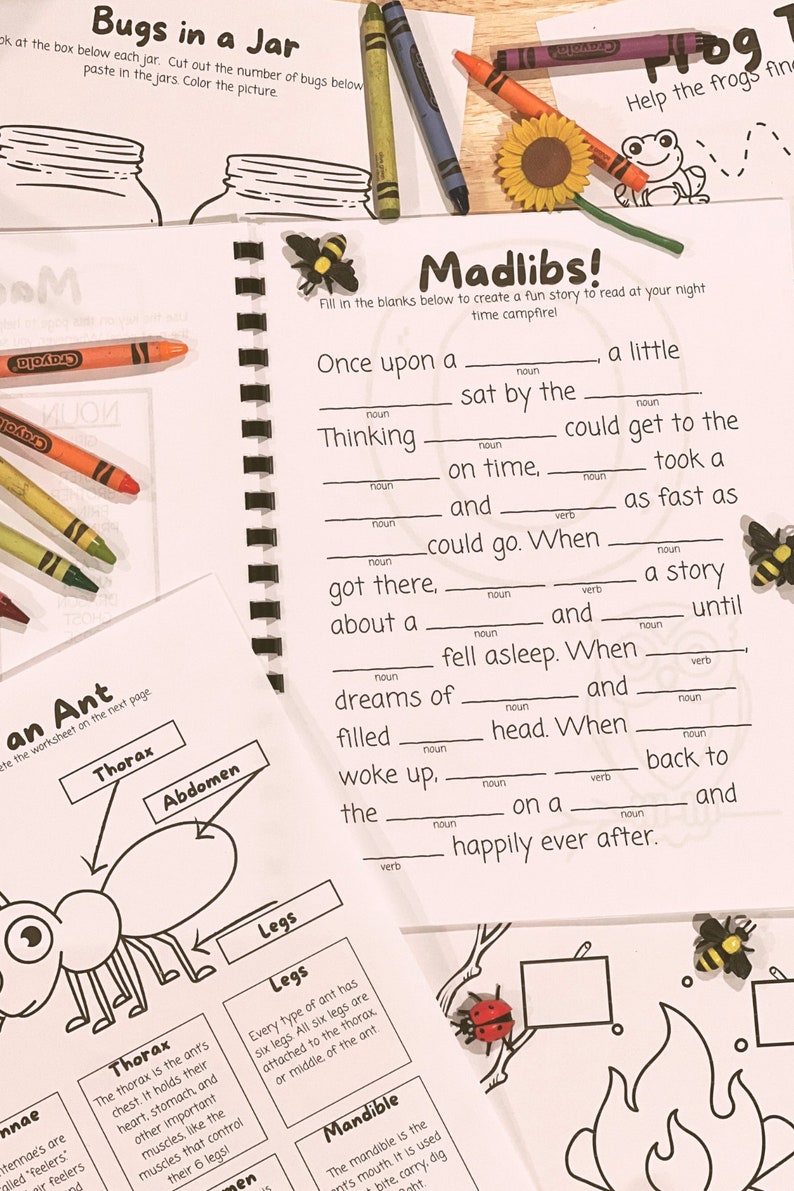 Bugs in a Jar
ok at the box below each jar. Cut out the number of bugs below
paste in the jars. Color the picture.
Crayola
Frog T
Help the frogs find
Crayola
Crayola
Madlibs!
Fill in the blanks below to create a fun story to read at your night
time campfire!
Once upon a ____, a little
noun
____ sat by the ____.
noun noun
Thinking ____ could get to the
noun
____ on time, ____ took a
noun noun
____ and ____ as fast as
noun verb
____ could go. When ____
noun noun
got there, ____ ____ a story
noun verb
about a ____ and ____ until
noun noun
____ fell asleep. When ____,
noun verb
dreams of ____ and ____
noun noun
filled ____ head. When ____
noun noun
woke up, ____ ____ back to
noun verb
the ____ on a ____ and
noun noun
____ happily ever after.
verb
NOUN
an Ant
ete the worksheet on the next page.
Thorax
Abdomen
Legs
Legs
Every type of ant has
six legs. All six legs are
attached to the thorax,
or middle, of the ant.
Thorax
The thorax is the ant's
chest. It holds their
heart, stomach, and
other important
muscles, like the
muscles that control
their 6 legs!
Mandible
The mandible is the
ant's mouth. It is used
bite, carry, dig
nnae
tennae's are
alled "feelers."
eir feelers
men